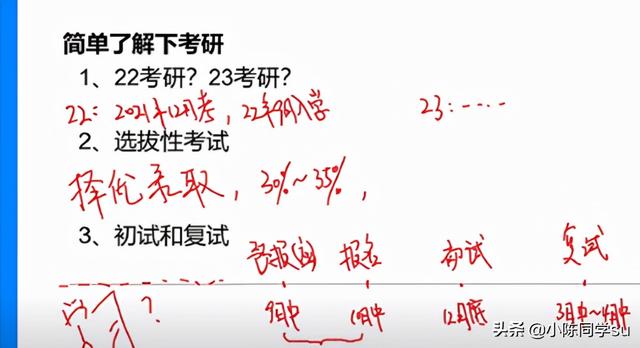 简单了解下考研
1、22考研？23考研？
22：2021年12月考，22年9月入学 23：----
2、选拔性考试
择优录取，30%~35%，
3、初试和复试
预报名 报名 初试 复试
？ 9月中 10月中 12月底 3月中~4月中
头条 @小陈同学Su